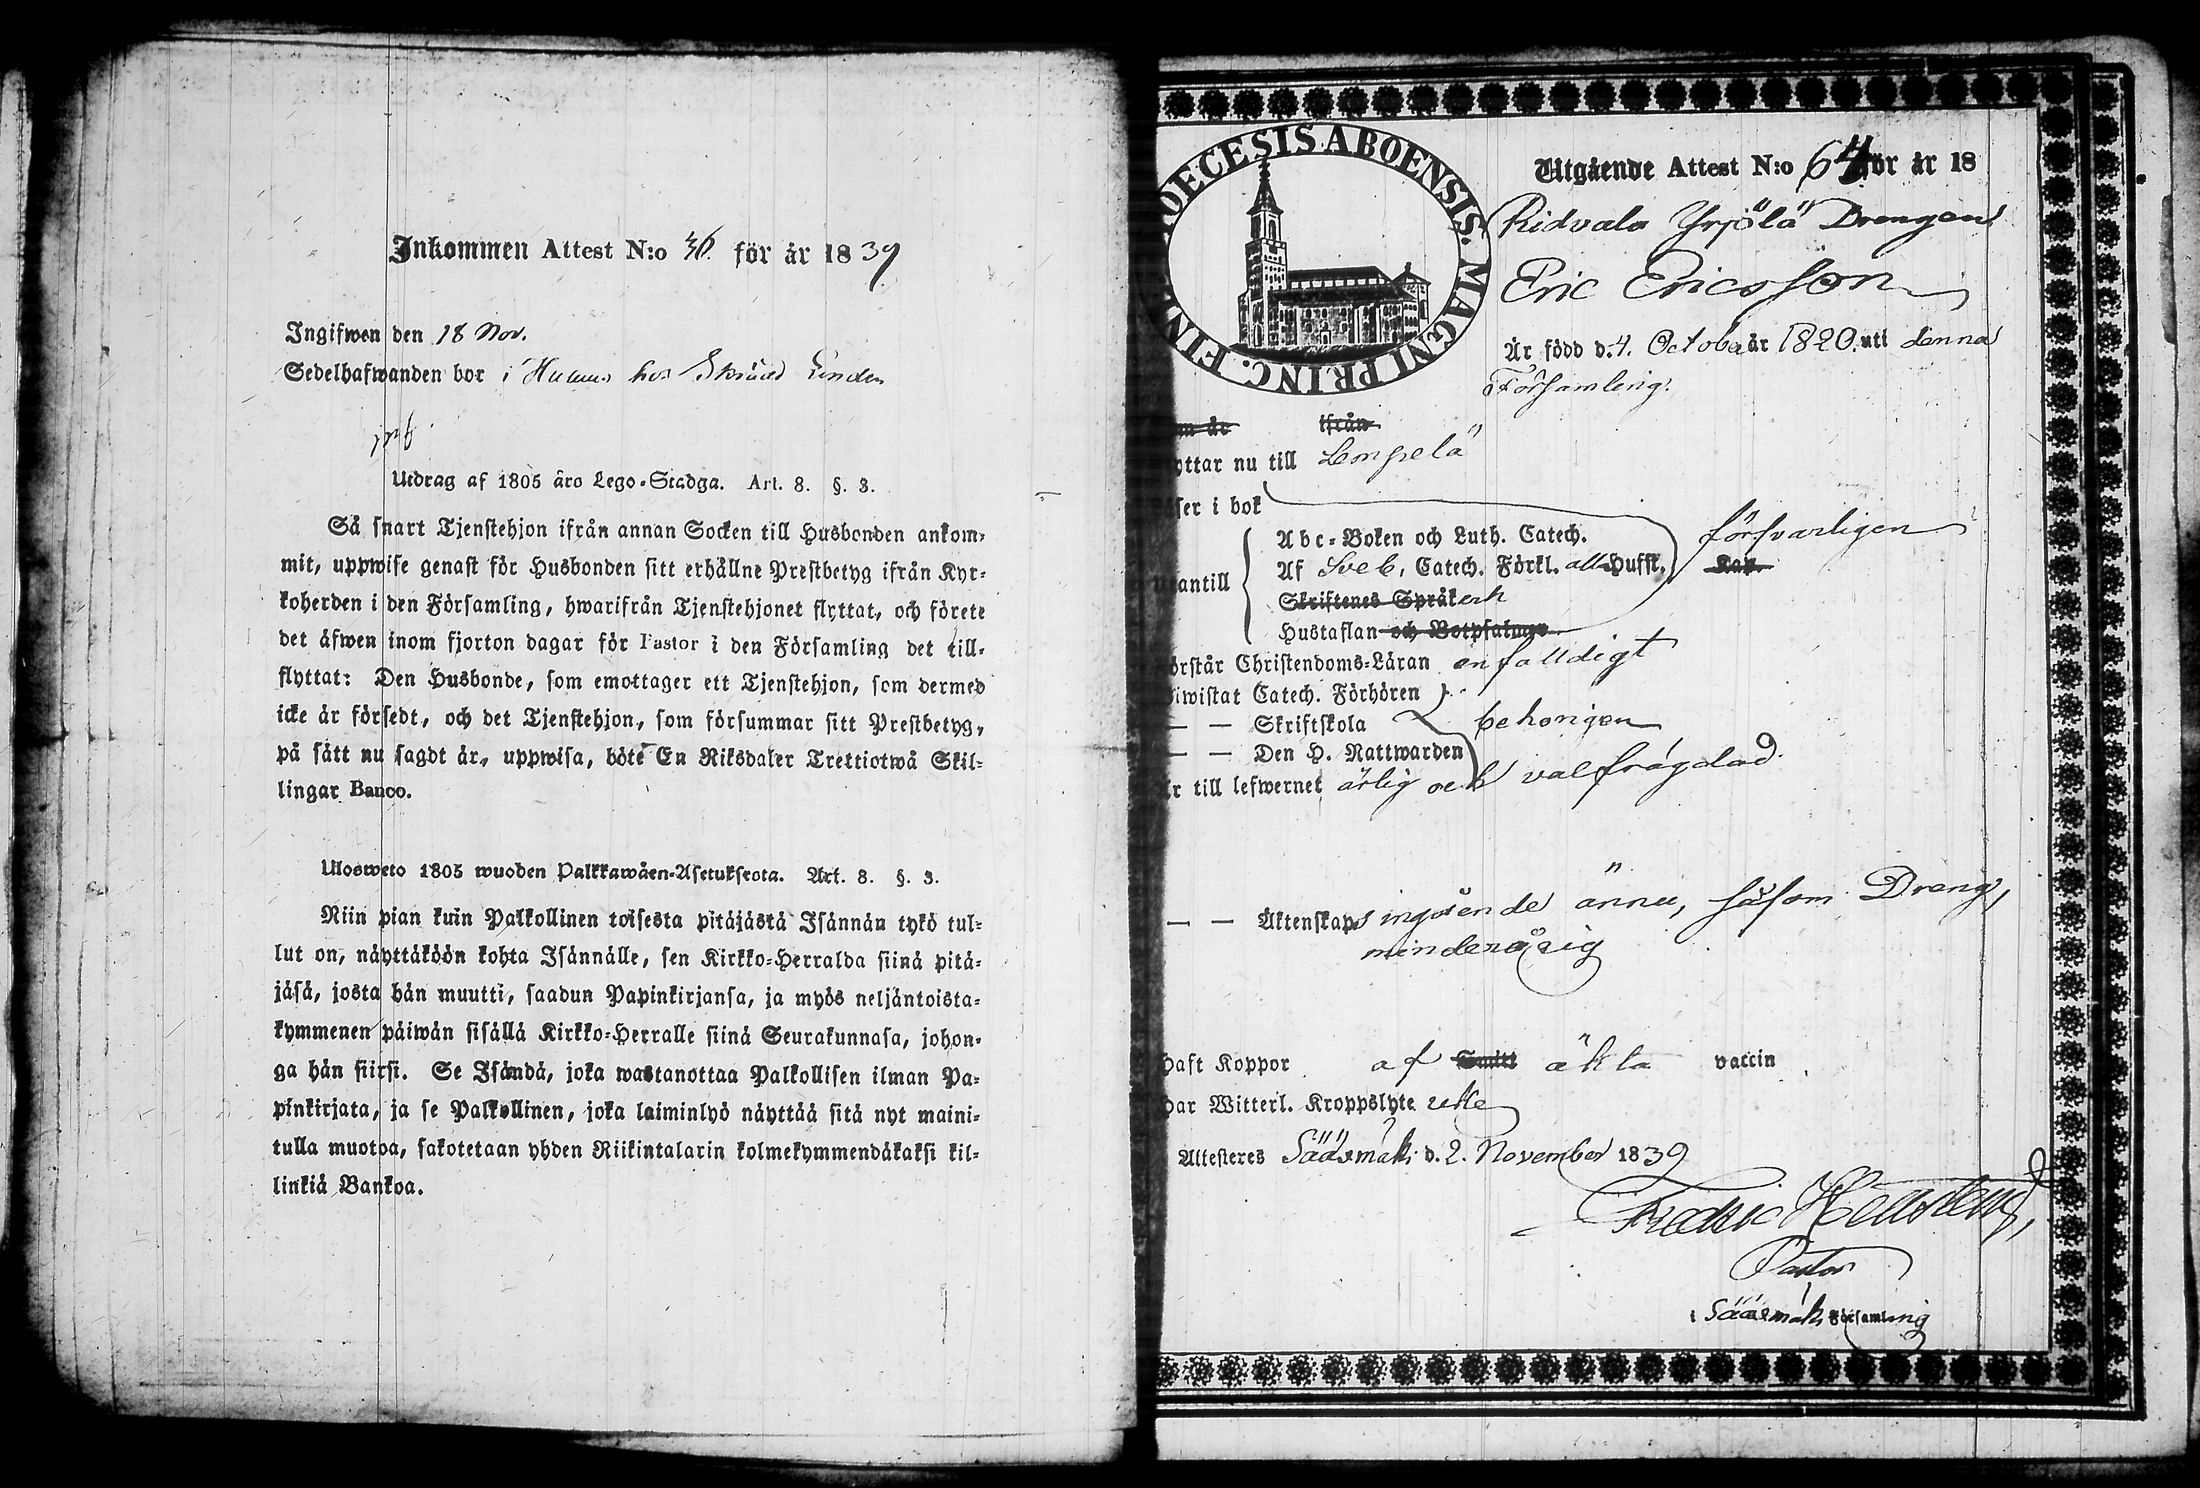 Inkommen Attest N:o 36. för år 1839
Ingifwen den 18 Nov.
Sedelhafwanden bor i hos Linden
Utdrag af 1805 års Lego-Stadga. Art. 8. §. 3.
Så snart Tjenstehjon ifrån annan Socken till Husbonden ankom-
mit, uppwise genast för Husbonden sitt erhållne Prestbetyg ifrån Kyr-
koherden i den Församling, hwarifrån Tjenstehjonet flyttat, och förete
det äfwen inom fjorton dagar för Pastor i den Församling det till-
flyttat: Den Husbonde, som emottager ett Tjenstehjon, som dermed
icke är försedt, och det Tjenstehjon, som försummar sitt Prestbetyg,
på sätt nu sagdt är, uppwisa, böte En Riksdaler Trettiotwå Skil-
lingar Banco.
Ulosweto 1805 wuoden Palkkawäen-Asetuksesta. Art. 8. §. 3.
Niin pian kuin Palkollinen toisesta pitäjästä Isännän tykö tul-
lut on, näyttäköön kohta Isännälle, sen Kirkko-Herralda siinä pitä-
jäsä, josta hän muutti, saadun Papinkirjansa, ja myös neljäntoista-
kymmenen päiwän sisällä Kirkko-Herralle siinä Seurakunnasa, johon-
ga hän siirsi. Se Isändä, joka wastanottaa Palkollisen ilman Pa-
pinkirjata, ja se Palkollinen, joka laiminlyö näyttää sitä nyt maini-
tulla muotoa, sakotetaan yhden Riikintalarin kolmekymmendäkaksi kil-
linkiä Bankoa.
DIOECESIS ABOENSIS. MAGNI PRINC. FINL
Utgående Attest N:o 64 för år 18
Ridvala Yrjölä Drengen
Eric Ericsson
Är född d. 4. October år 1820. uti denna
Församling.
om är ifrån
yttar nu till Lempelä
äser i bok
Abc-Boken och Luth. Catech. försvarligen
Utantill Af Sveb. Catech. Förkl. alla Hufst. Kap.
Skriftenes Språk och
Hustaflan och Botpsalmer
örstår Christendoms-Läran enfalldigt
iwistat Catech. Förhören
— — Skriftskola behörigen
— — Den H. Nattwarden
är till lefwernet ärlig och välfrägdad.
— — Äktenskaps ingående ännu, såsom Dreng,
minderårig
haft Koppor af Smitt äkta vaccin
har Witterl. Kroppslyte icke
Attesteres Sääsmäki d. 2. November 1839
Fredric
Pastor
i Sääsmäki Församling